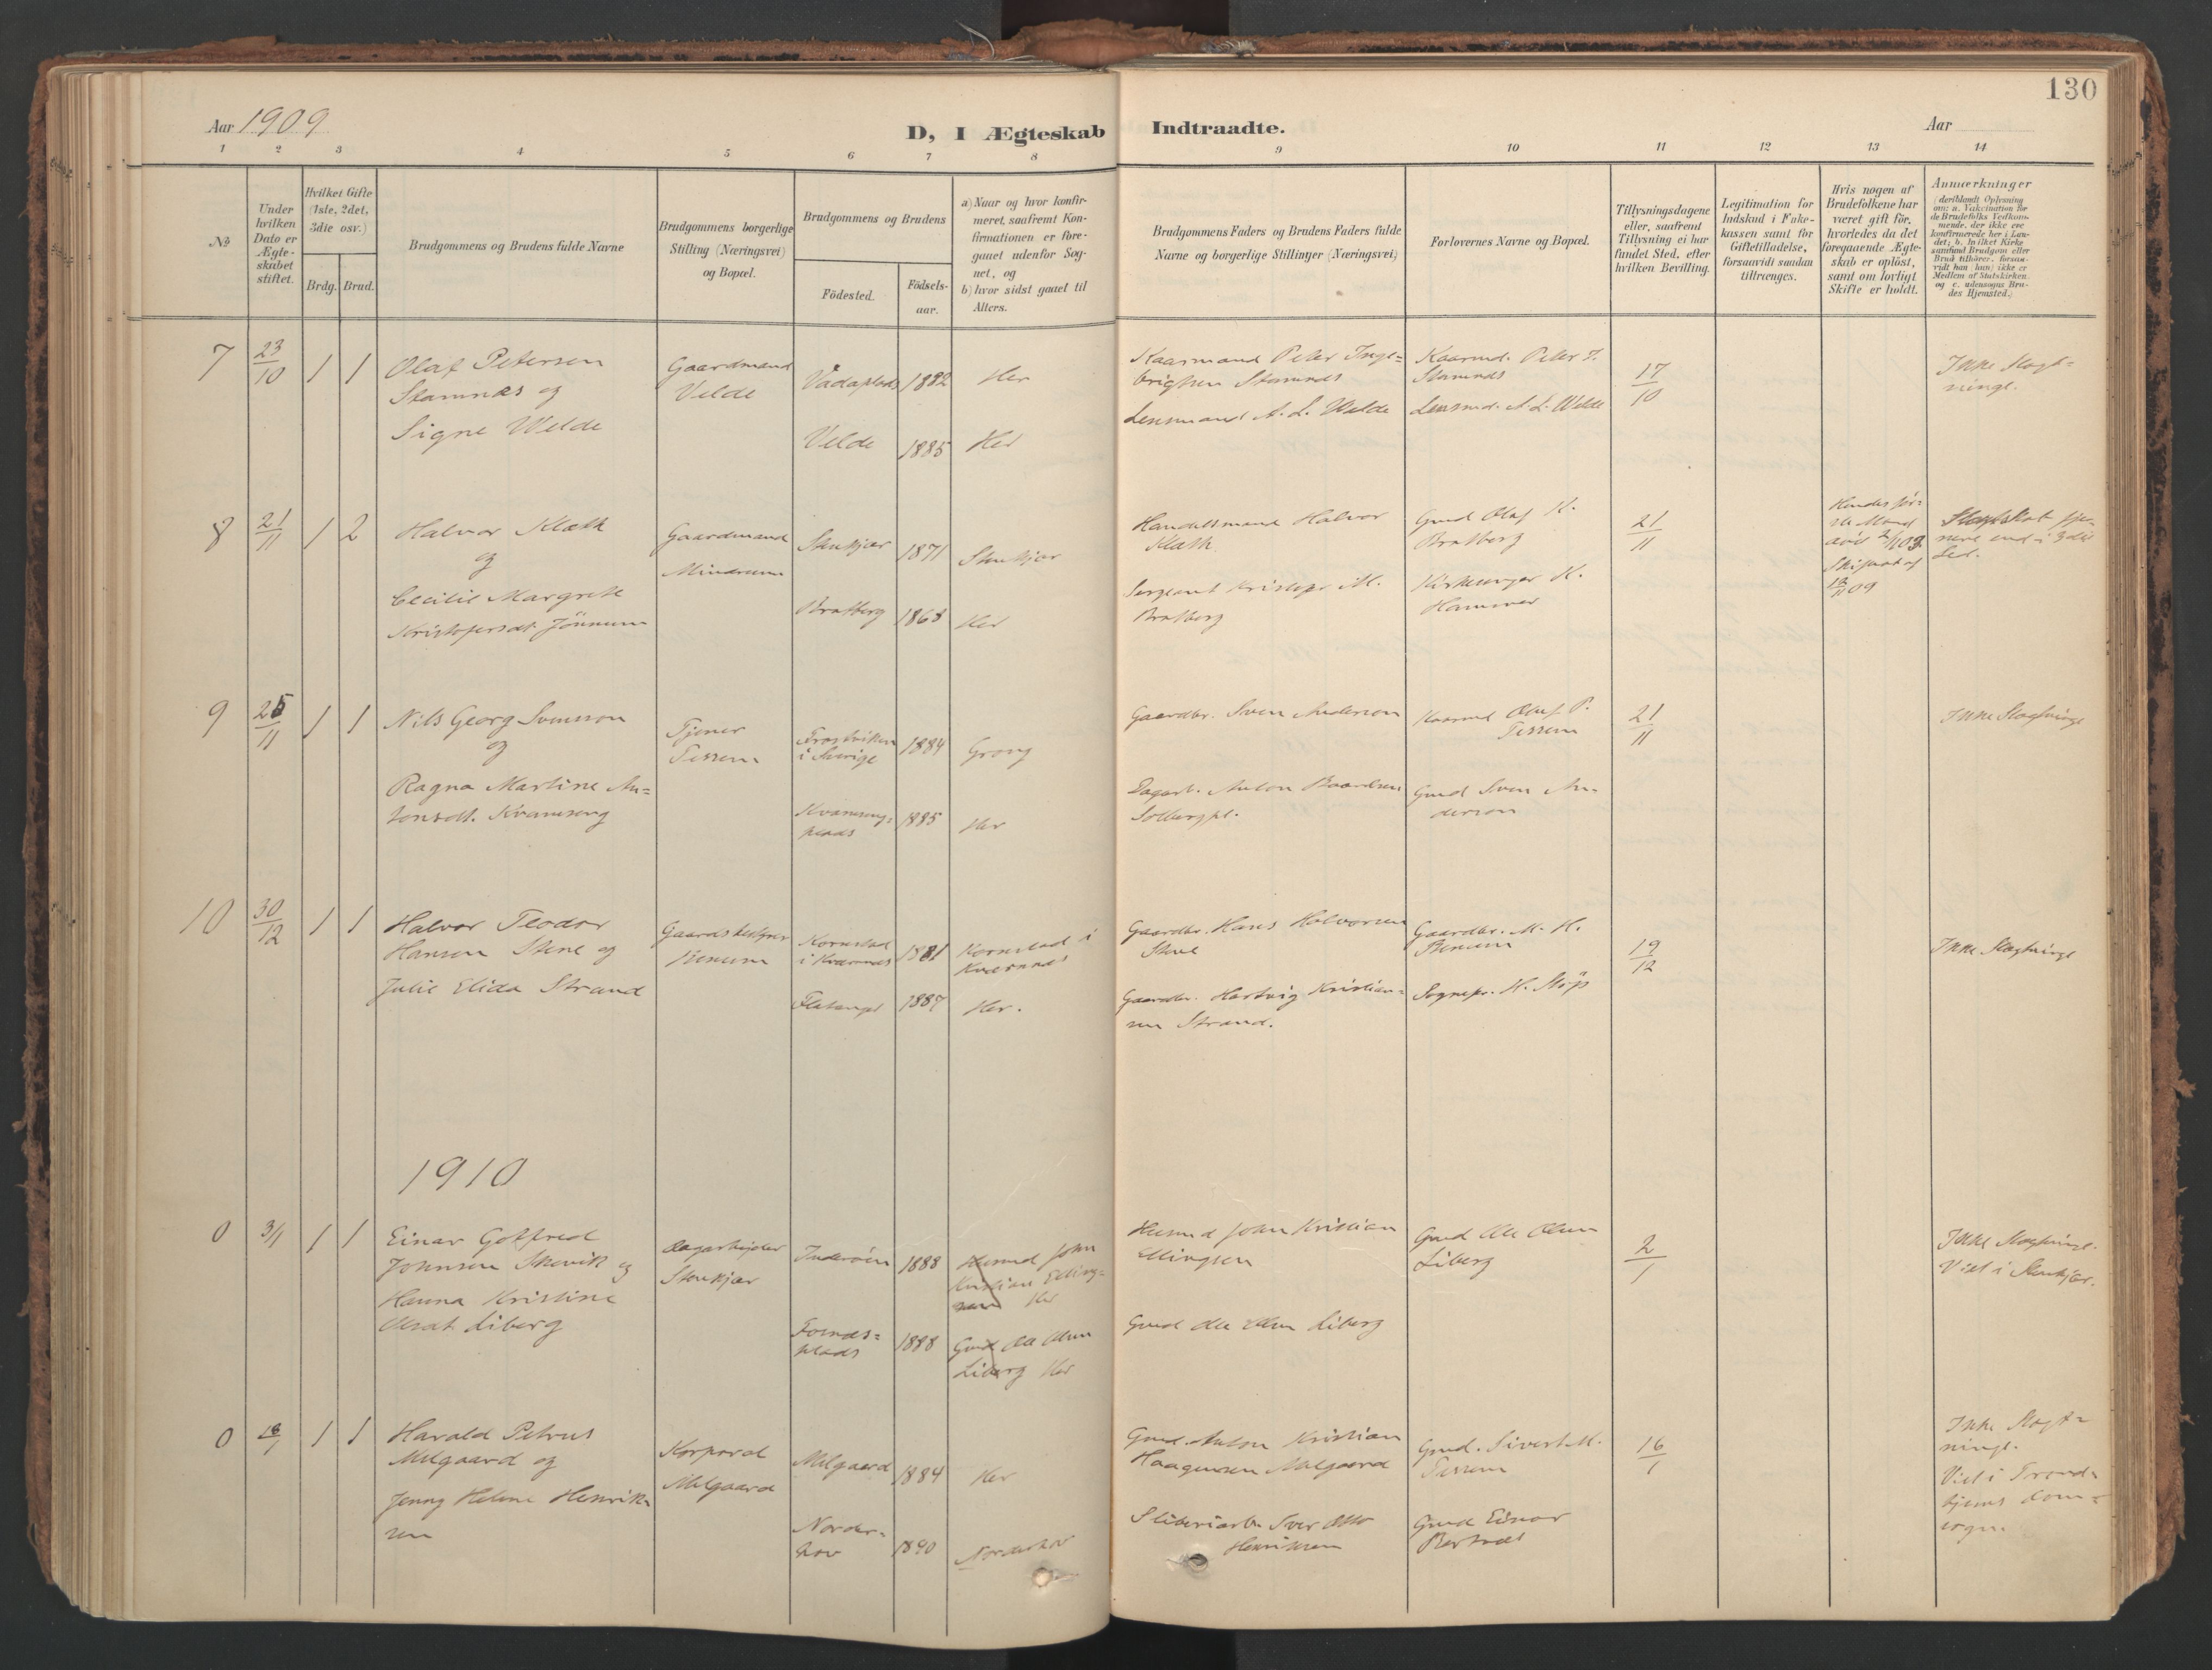 130
Aar 1909
D, I Ægteskab Indtraadte.
Aar
1 2 3 4 5 6 7 8 9 10 11 12 13 14
No
Under hvilken Dato er Ægteskabet stiftet.
Hvilket Gifte (1ste, 2det, 3die osv.)
Brdg. Brud.
Brudgommens og Brudens fulde Navne
Brudgommens borgerlige Stilling (Næringsvei) og Bopæl.
Brudgommens og Brudens
Födested.
Födselsaar.
a) Naar og hvor konfirmeret, saafremt Konfirmationen er foregaaet udenfor Sognet, og
b) hvor sidst gaaet til Alters.
Brudgommens Faders og Brudens Faders fulde Navne og borgerlige Stillinger (Næringsvei)
Forlovernes Navne og Bopæl.
Tillysningsdagene eller, saafremt Tillysning ei har fundet Sted, efter hvilken Bevilling.
Legitimation for Indskud i Enkekassen samt for Giftetilladelse, forsaavidt saadan tiltrænges.
Hvis nogen af Brudefolkene har været gift för, hvorledes da det foregaaende Ægteskab er oplöst, samt om lovligt Skifte er holdt.
Anmærkninger (deriblandt Oplysning om: a. Vakcination for de Brudefolks Vedkommende, der ikke ere konfirmerede her i Landet; b. hvilket Kirkesamfund Brudgom eller Brud tilhörer, forsaavidt han (hun) ikke er Medlem af Statskirken, og c. udensogns Brudes Hjemsted.)
7 23/10 1 1
Olaf Petersen
Stamnæs og
Signe Welde
Gaardmand
Velde
Vadaplads 1882 Her
Velde 1885 Her
Kaarmand Peter Inge=
brigtsen Stamnes
Lensmand A. L. Welde
Kaarmd. Peter I.
Stamnes
Lensmd. A. L. Welde
17/10
Ikke Slægt=
ninge.
8 21/11 1 2
Halvor Klæth
og
Cecilie Margrete
Kristofersdt. Jönnum
Gaardmand
Mindrum
Stenkjær 1871 Stenkjær
Bratberg 1868 Her
Handelsmand Halvor
Klæth
Sergeant Kristofer M.
Bratberg
Gmd Olaf K.
Bratberg
Kirkesanger K.
Hammer
21/11
Hendes för=
ste Mand
Skifteat af
13/11 09
Slægtskab fjer=
nere end i 3die
Led.
9 25/11 1 1
Nils Georg Svensson
og
Ragna Martine An=
tonsdt. Kvamseng
Tjener
Tessem
Frostviken
i Sverige 1884 Grong
Kvamseng=
plads 1885 Her
Gaardbr. Sven Anderson
Dagarb. Anton Baardsen
Solbergpl.
Kaarmd Oluf P.
Tessem
Gmd Sven An=
derson
21/11
Ikke Slægtninge
10 30/12 1 1
Halvor Teodor
Hansen Stene og
Julie Elida Strand
Gaardsbestyrer
Benum
Kornstad
i Kvernnes 1881 Kornstad i
Kvernnes
Flatanger 1887 Her.
Gaardbr. Hans Halvorsen
Stene
Gaardbr. Hartvig Kristian=
sen Strand.
Gaardbr. M. H.
Benum
Sognepr. K. Støp
19/12
Ikke Slægtninge
1910
0 3/1 1 1
Einar Gotfred
Johnsen Skevik og
Hanna Kristine
Olsdt. Liberg
Dagarbejder
Stenkjær
Inderöen 1888 Husmd John
Kristian Elling=
sen Her
Fornes=
plads 1888 Gmd Ole Olsen
Liberg Her
Husmd John Kristian
Ellingsen
Gmd Ole Olsen Liberg
Gmd Ole Olsen
Liberg
2/1
Ikke Slægtninge.
Viet i Stenkjær.
0 18/1 1 1
Harald Petrus
Melgaard og
Jenny Helene Henrik=
sen
Korporal
Melgaard
Melgaard 1884 Her
Norder=
hov 1890 Norderhov
Gmd. Anton Kristian
Haagensen Melgaard
Sliberiarb. Iver Otto
Henriksen
Gmd. Sivert M.
Tessem
Gmd Einar
16/1
Ikke Slægt=
ninge.
Viet i Trond=
hjems Dom=
sogn.